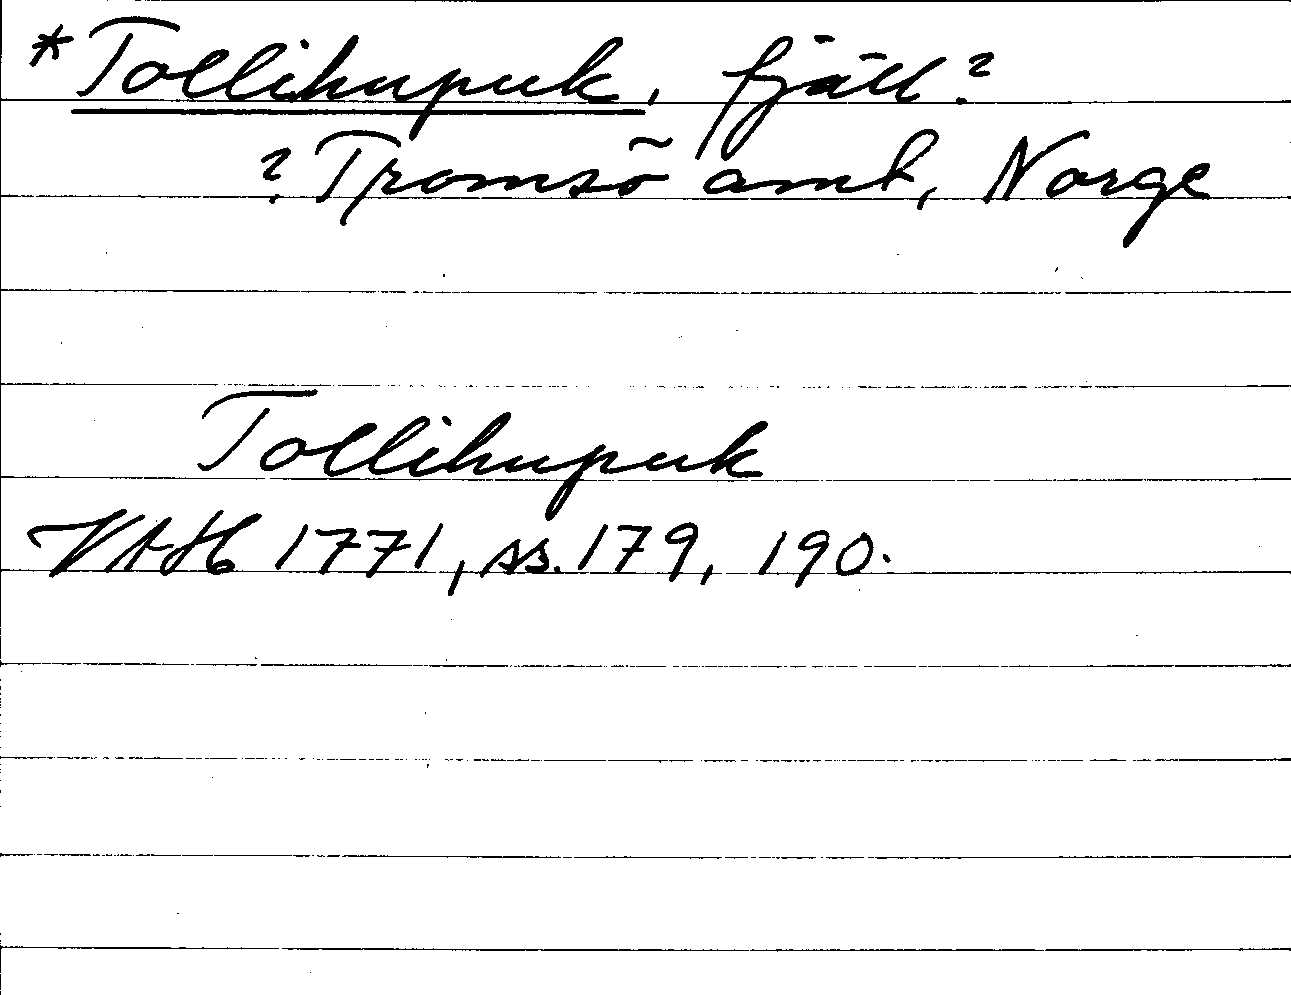 *Tollihupuk, fjäll?
? Tromsö amt, Norge
Tollihupuk
VAH 1771, ss. 179, 190.